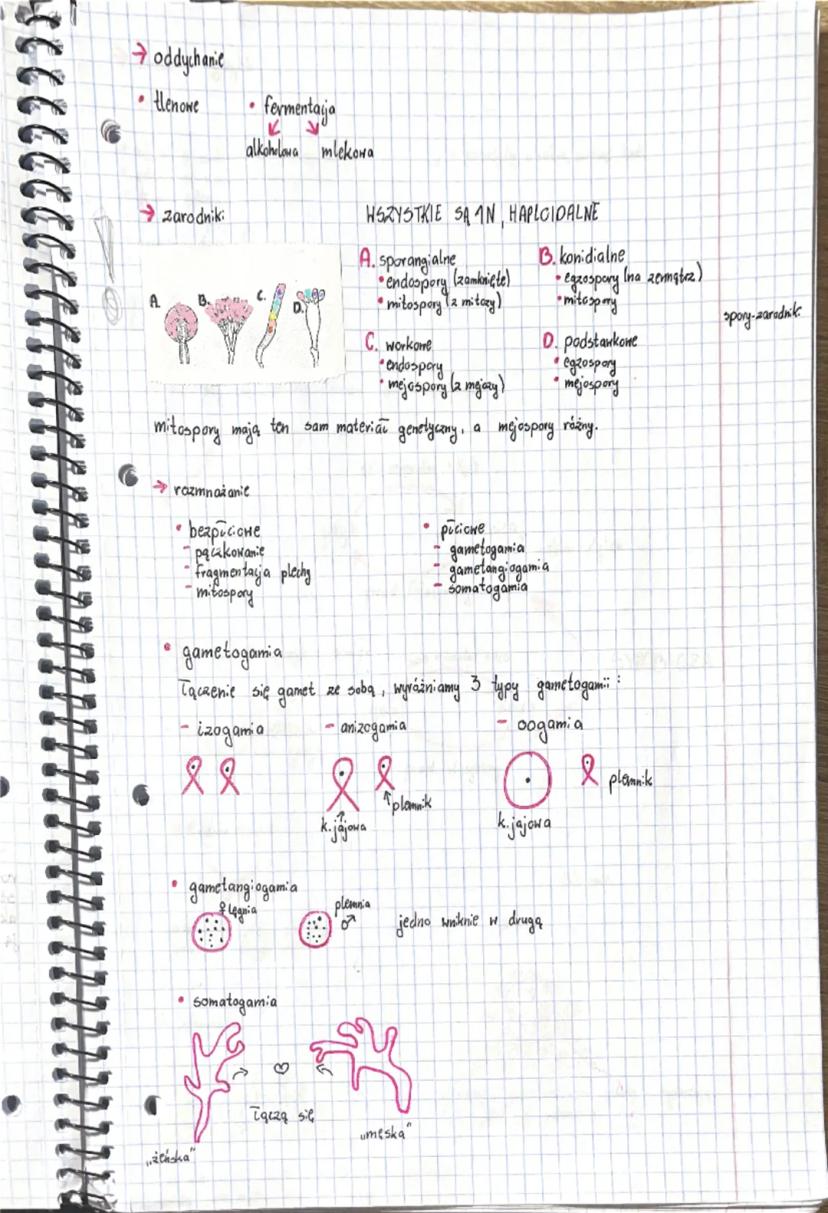 → oddychanie
• tlenowe • fermentacja
alkoholowa mlekowa
→ zarodniki WSZYSTKIE SĄ 1N, HAPLOIDALNE
A. B. C. D.
A. sporangialne
• endospory (zamknięte)
• mitospory (z mitozy)
B. konidialne
• egzospory (na zewnątrz)
• mitospory
spory-zarodniki
C. workowe
• endospory
• mejospory (z mejozy)
D. podstawkowe
• egzospory
• mejospory
mitospory mają ten sam materiał genetyczny, a mejospory różny.
→ rozmnażanie
• bezpłciowe
- pączkowanie
- fragmentacja plechy
- mitospory
• płciowe
- gametogamia
- gametangiogamia
- somatogamia
• gametogamia
łączenie się gamet ze sobą, wyróżniamy 3 typy gametogamii:
- izogamia - anizogamia - oogamia
k. jajowa plemnik k. jajowa plemnik
• gametangiogamia
♀ lęgnia plemnia ♂ jedno wniknie w drugą
• somatogamia
łączą się
„żeńska" „męska"